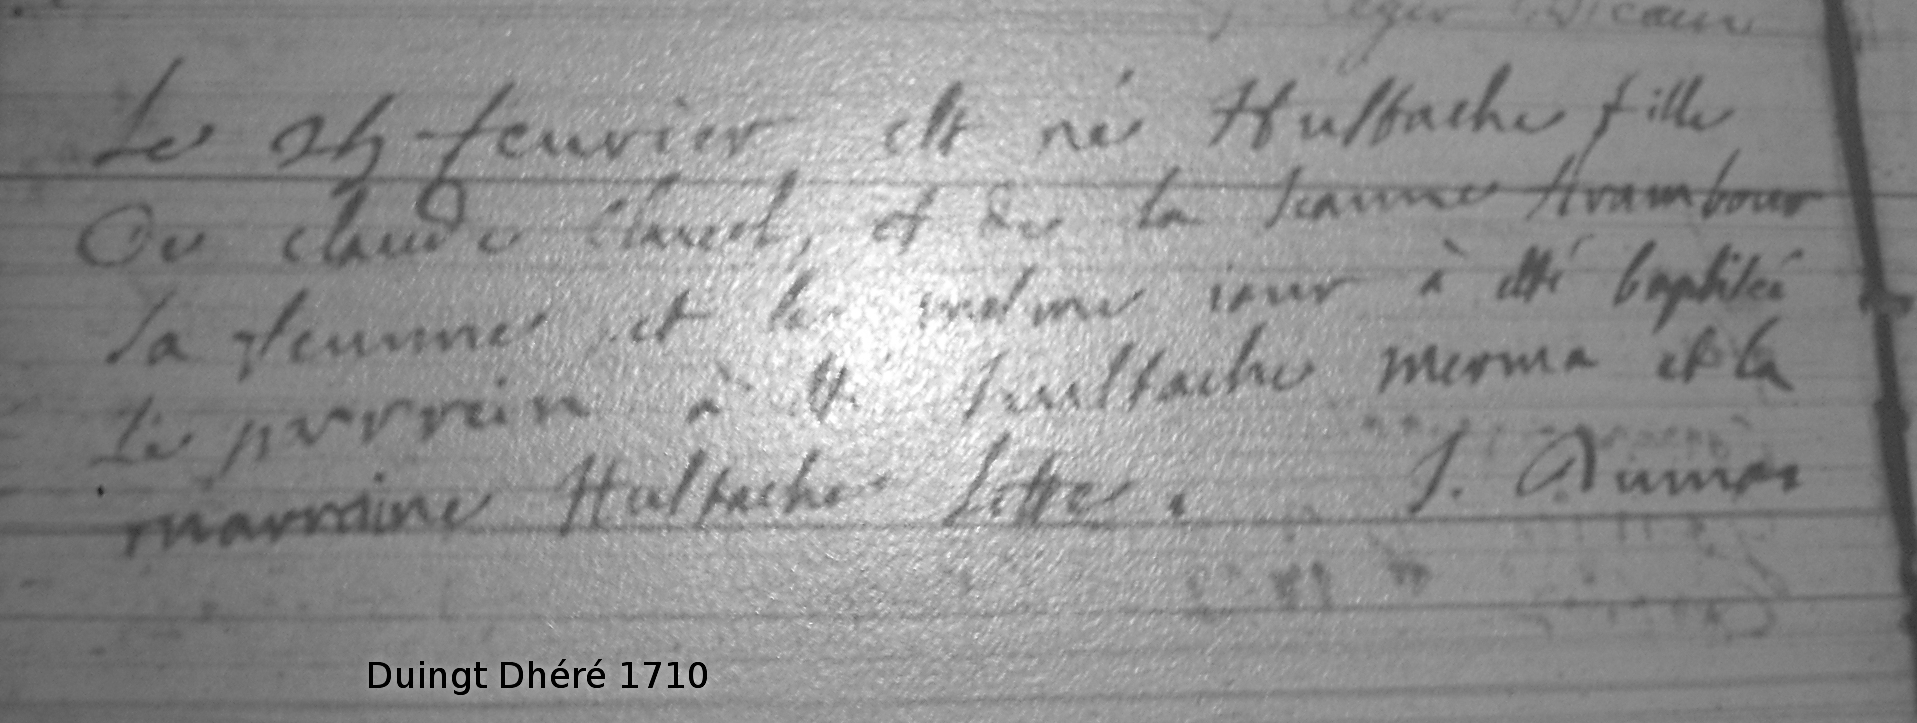 Le 24 feurier est né Hustache fille
De claude Claret, et de la Jeanne Arambour
sa femme et le mesme iour à esté baptiseé
Le parrein à esté Hustache merma et la
marraine Hustache Lette. J. Dumas
Duingt Dhéré 1710